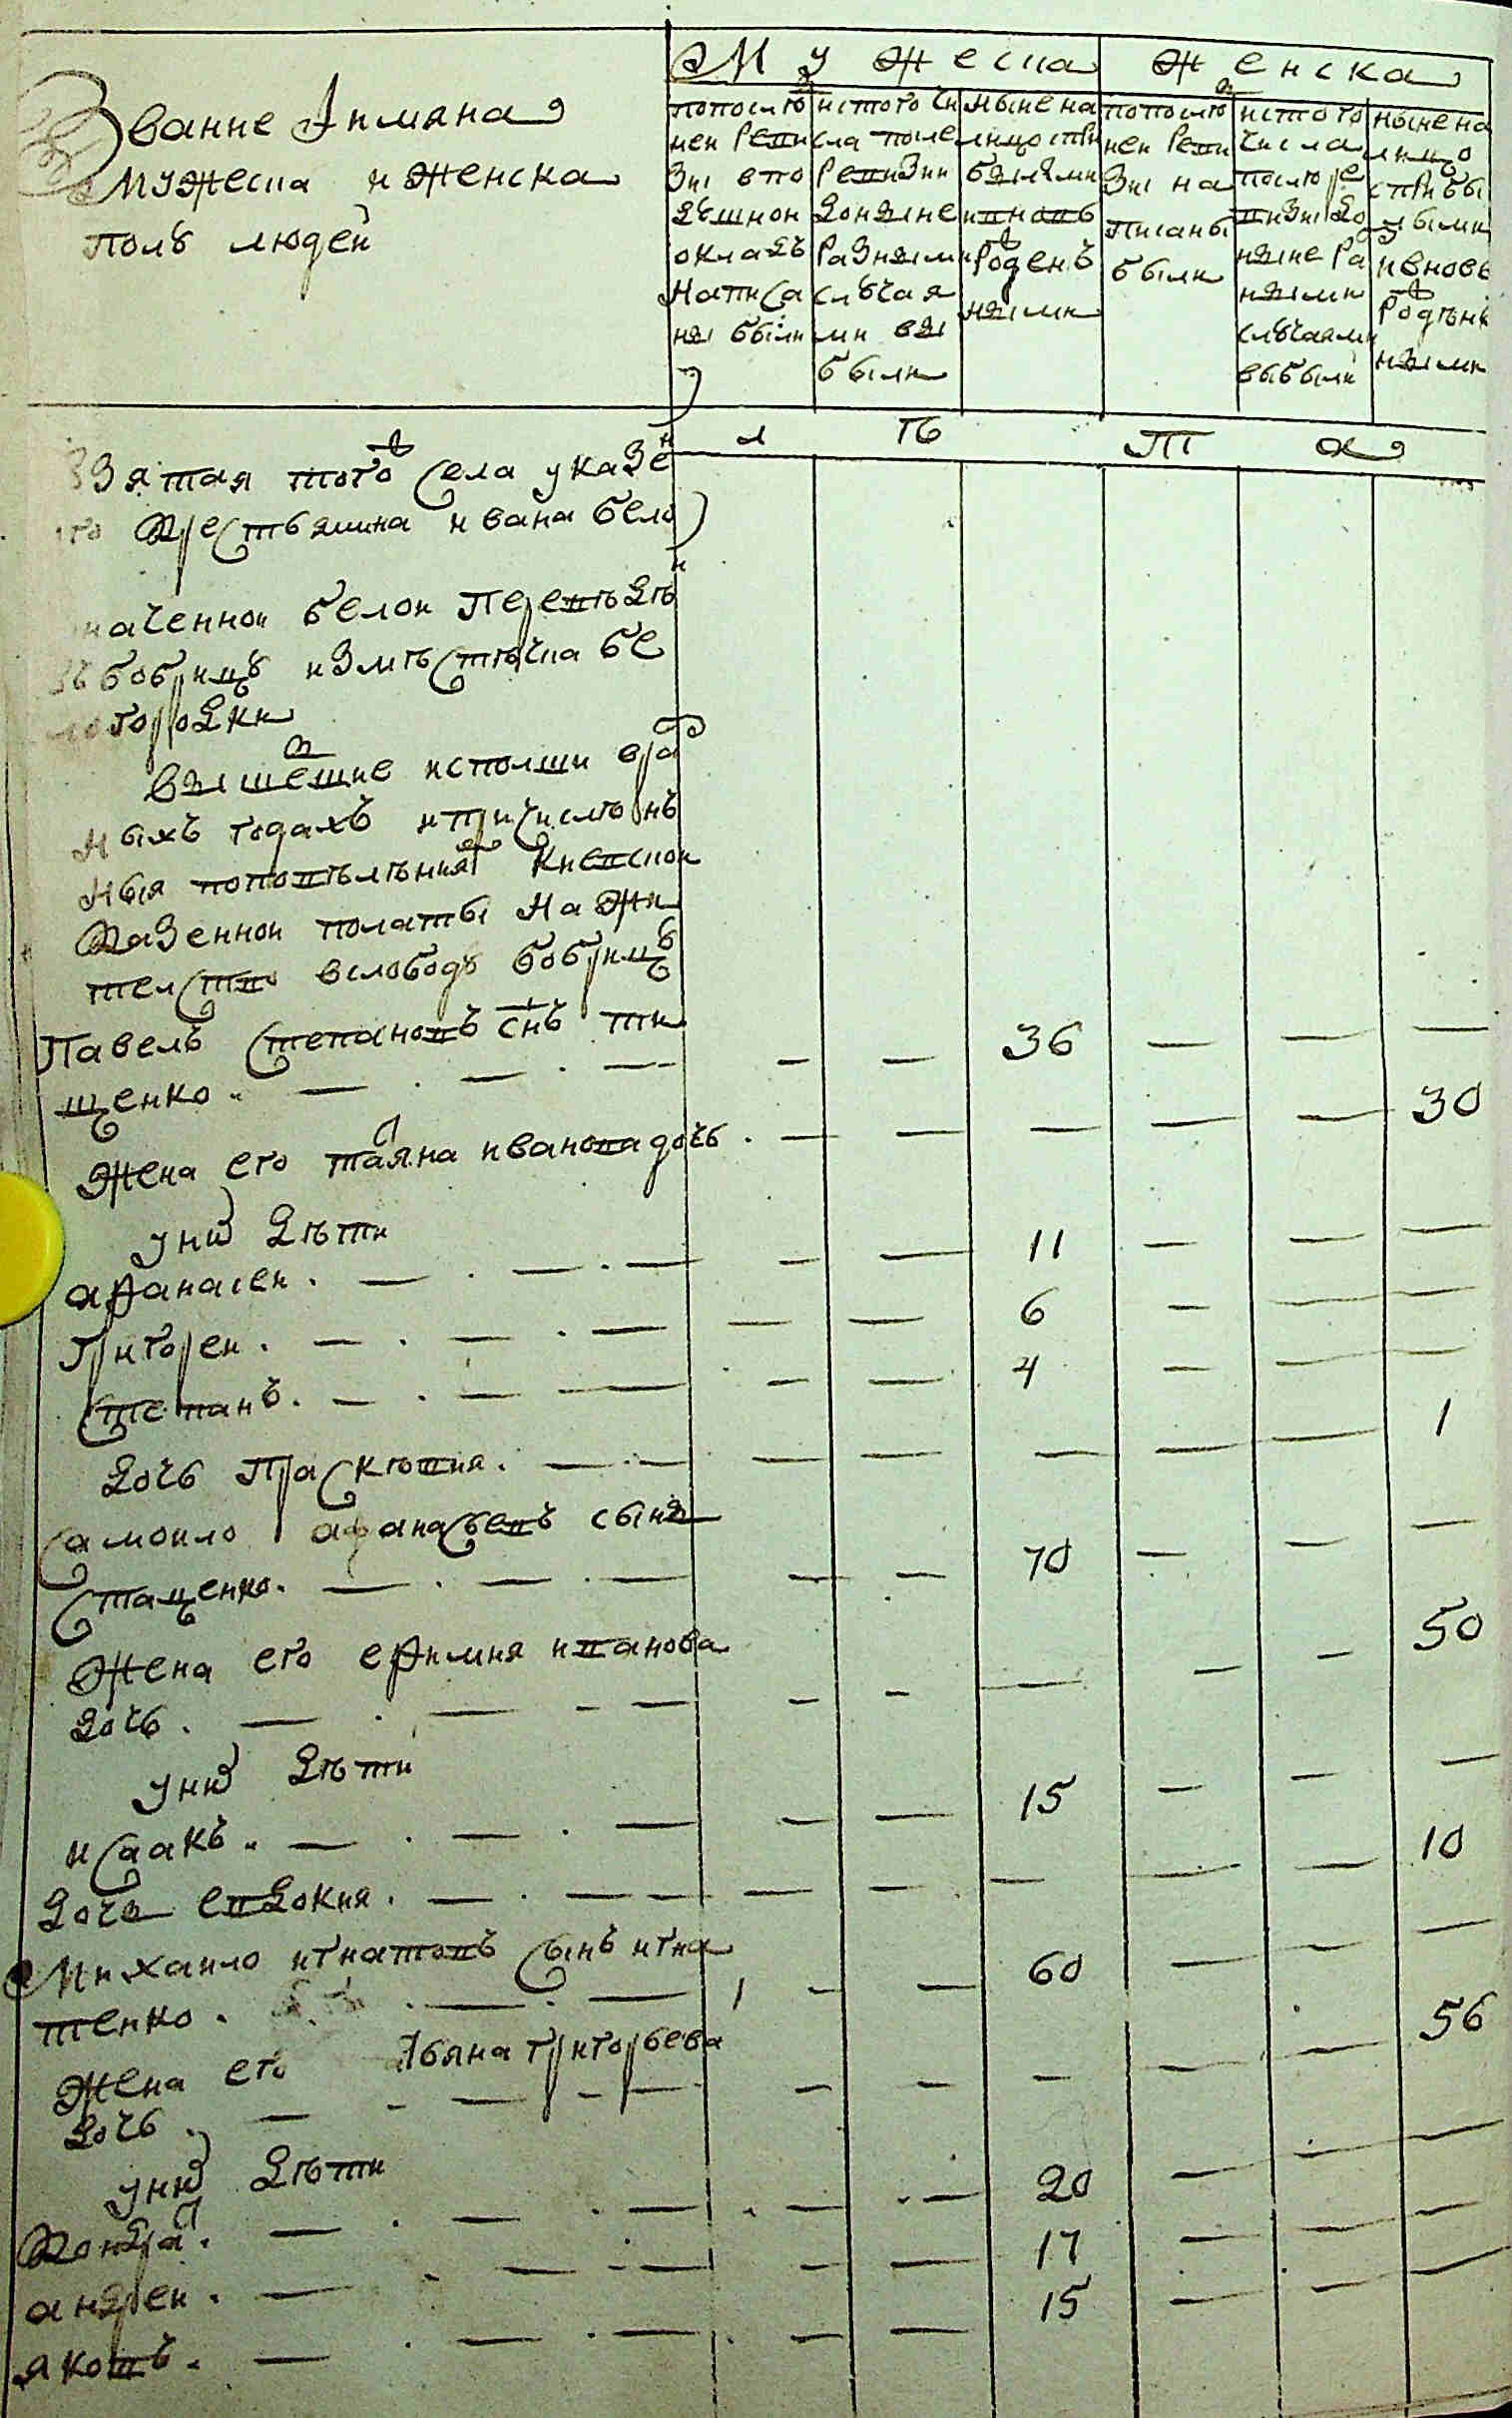 Звание Имяна
мужеска и женска
полꙋ людей
Мужеска
Женска
попослѣд
ней реви
зиі впо
дꙋшной
окладъ
написа
ны были
истого чи
сла после
ревизии
доныне
разными
слꙋчая
ми вы
были
ныне на
лицо спри
былыми
ивновь
рожден
ными
попослѣ
ней реви
зиі на
писаны
были
истого
числа
послѣ ре
визиі до
ныне ра
ными
слꙋчаями
выбыли
ныне на
лицо
спри бы
лыми
ивновь
рожден
ными
л ѣ т а
Взятая того села указе
го крестьянина ивана бело
наченной белой переведе
въ бобринцꙋ измѣстечка бе
логородки
вышешие исполши вра
ныхъ годахъ ипричислѣнъ
ныя поповѣлѣния Киевской
Казенной полаты на жи
телство вслободꙋ бобринцꙋ
Павелъ Степановъ снъ ти
щенко. — . — . — — — 36 — — —
Жена его таяна иванова дочь. — — — — — 30
уних дѣти
афанасеи. — . — . — — — 11 — — —
Григореи. — . — . — — — 6 — — —
Степанъ. — . — — — — 4 — — —
дочь Прасковия. — . — — — — — — 1
Самоило афанасьевъ сынъ
Стаценко. — . — . — — — 70 — — —
Жена его ефимия иванова
дочь. — . — — — — — — — — 50
уних дѣти
исаакъ. — . — . — — — 15 — — —
дочь евдокия. — . — — — — — — — 10
Михаило игнатовъ сынъ игна
тенко. . — . — 1 — — 60 — — —
Жена его Ульяна григорьева
дочь. — — — — — — — — — — 56
уних дѣти
Кондрат. — . — . — . — . — 20 — — —
андреи. — — — . — — — 17 — — —
яковъ. — . — . — . — — 15 — — —